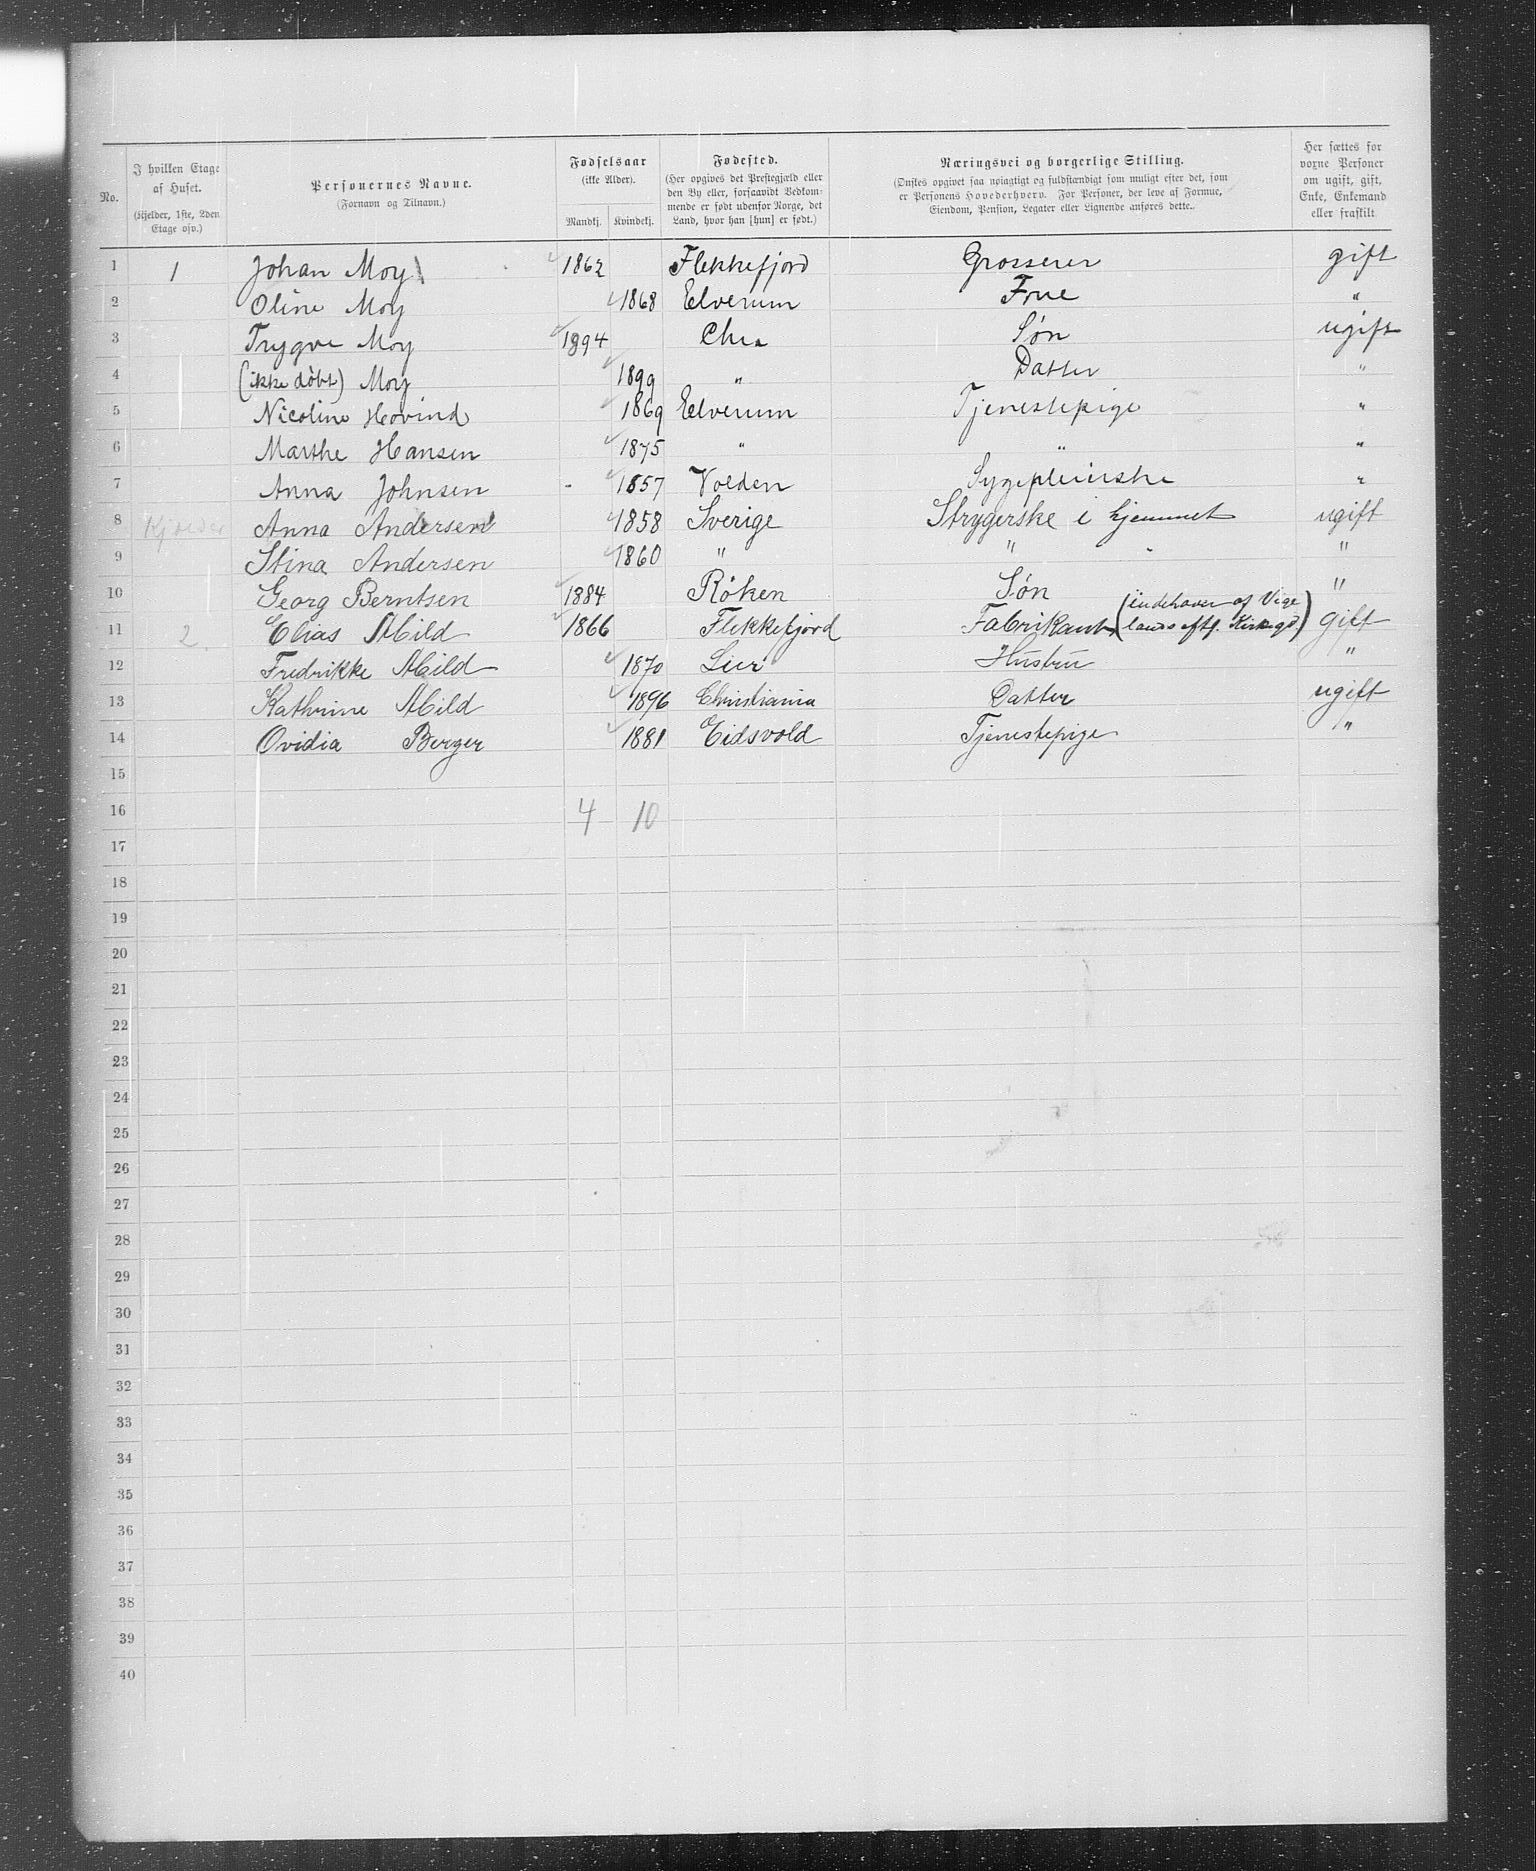 No.	I hvilken Etage af Huset. (Kjelder, 1ste, 2den Etage osv.)	Personernes Navne. (Fornavn og Tilnavn.)	Fødselsaar (ikke Alder). Mandkj. Kvindekj.	Fødested. (Her opgives det Prestegjæld eller den By eller, forsaavidt Vedkommende er født udenfor Norge, det Land, hvor han [hun] er født.)	Næringsvei og borgerlige Stilling. (Ønskes opgivet saa nøiagtigt og fuldstændigt som muligt efter det, som er Personens Hovederhverv. For Personer, der leve af Formue, Eiendom, Pension, Legater eller Lignende anføres dette..	Her sættes for voxne Personer om ugift, gift, Enke, Enkemand eller fraskilt
1 1 Johan Moy 1862 Flekkefjord Grosserer gift
2 Oline Moy 1868 Elverum Frue "
3 Trygve Moy 1894 Chra Søn ugift
4 (ikke døbt) Moy 1899 " Datter "
5 Nicoline Hovind 1869 Elverum Tjenestepige "
6 Marthe Hansen 1875 " " "
7 Anna Johnsen 1857 Volden Sygepleierske "
8 Kjælder Anna Andersen 1858 Sverige Strygerske i hjemmet ugift
9 Stina Andersen 1860 " " " "
10 Georg Berntsen 1884 Röken Søn "
11 2. Elias Mild 1866 Flekkefjord Fabrikant (indehaver af Vige lands eftf. Kirkegd) gift
12 Fredrikke Mild 1870 Lier Hustru "
13 Kathrine Mild 1896 Christiania Datter ugift
14 Ovidia Berger 1881 Eidsvold Tjenestepige "
15
16 4 10
17
18
19
20
21
22
23
24
25
26
27
28
29
30
31
32
33
34
35
36
37
38
39
40